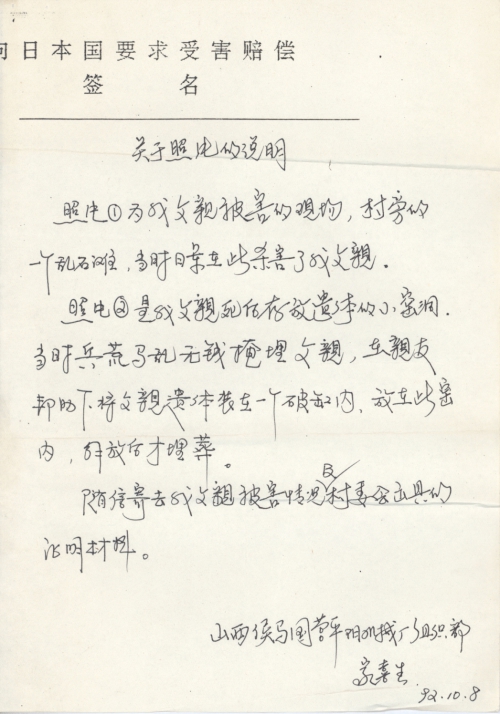 向日本国要求受害赔偿
签 名
关于照片的说明
照片①为我父亲被害的现场，村旁的
一个乱石滩，当时日军在此杀害了我父亲。
照片②是我父亲死后存放遗体的小窑洞。
当时兵荒马乱无钱掩埋父亲，在亲友
帮助下将父亲遗体装在一个破缸内，放在此窑
内，解放后才埋葬。
随信寄去我父亲被害情况及村委会出具的
证明材料。
山西侯马国营平阳机械厂组织部
喜生
92.10.8